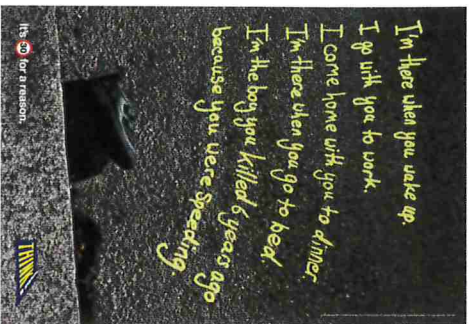 I'm there when you wake up.
I go with you to work.
I come home with you to dinner.
I'm there when you go to bed
I'm the boy you killed 6 years ago
because you were speeding
It's 30 for a reason.
THINK!